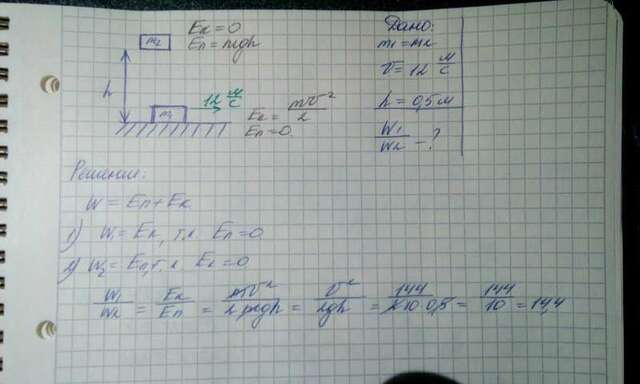 Eк = 0
m₂ Eп = mgh
h
12 м/с
m₁
Eк = mv²/2
Eп = 0
Дано:
m₁ = m₂
v = 12 м/с
h = 0,5 м
W₁/W₂ - ?
Решение:
W = Eп + Eк
1) W₁ = Eк, т.к Eп = 0
2) W₂ = Eп, т.к Eк = 0
W₁/W₂ = Eк/Eп = mv²/2mgh = v²/2gh = 144/2·10·0,5 = 144/10 = 14,4